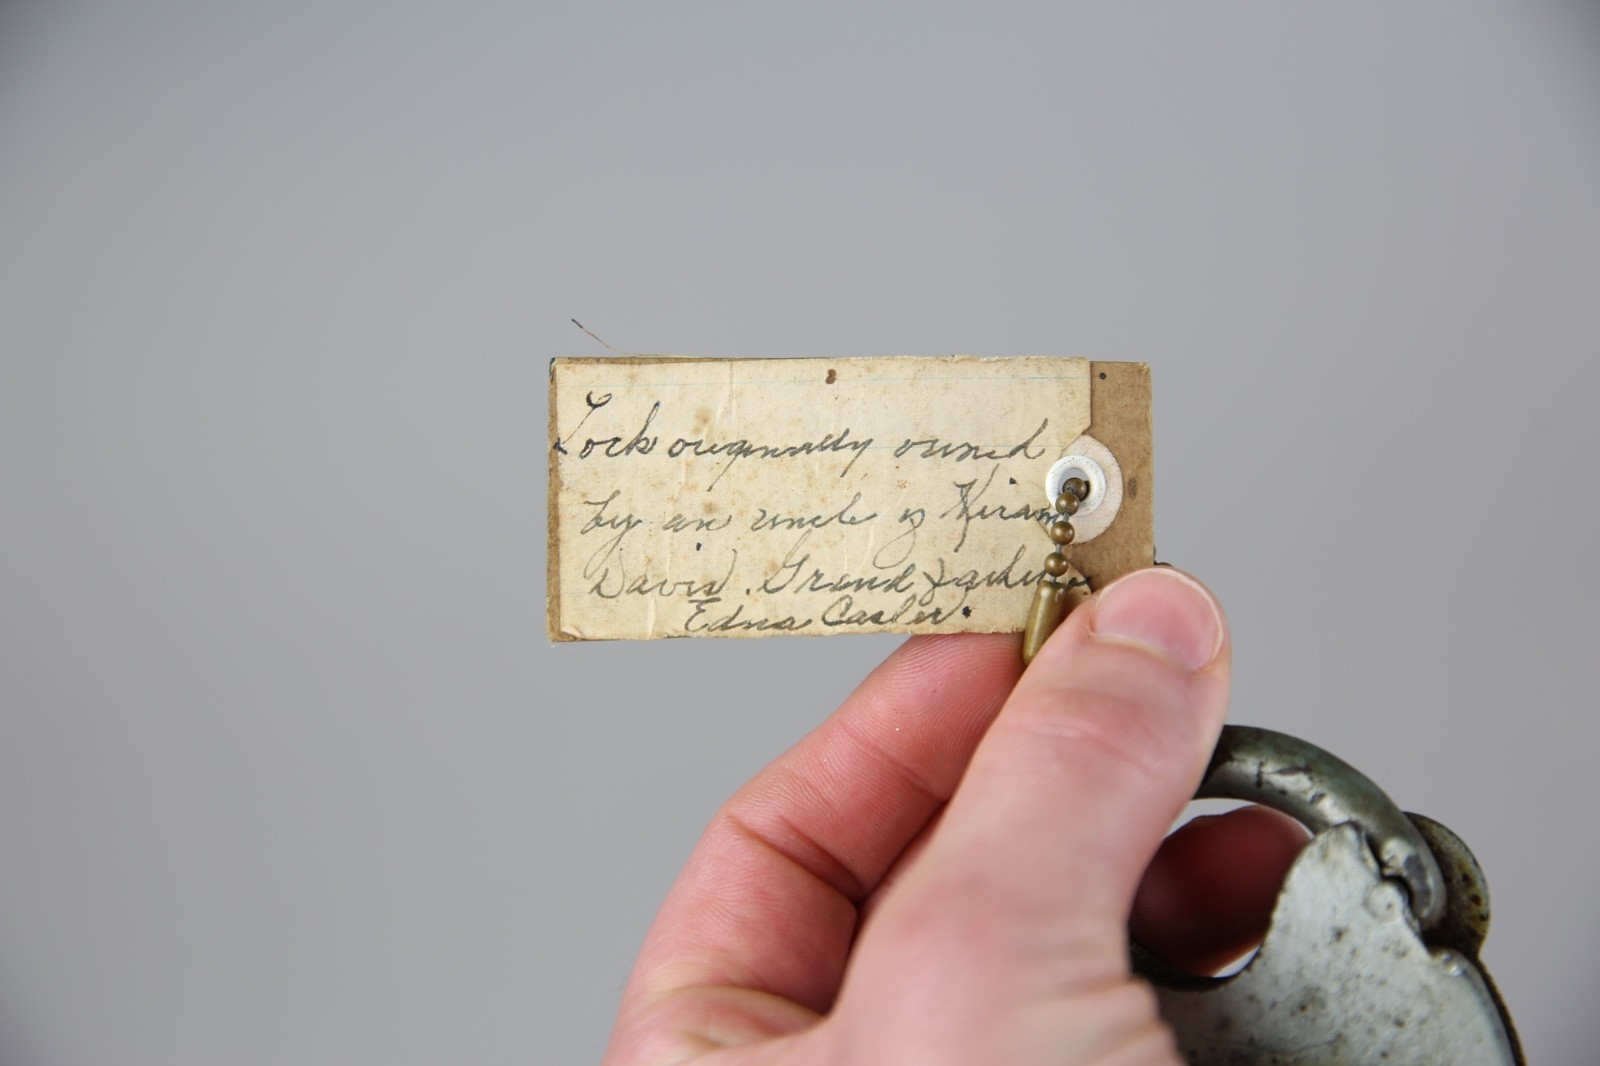 Lock originally owned
by an uncle of Hiram
Davis. Grand father
Edna Casler.